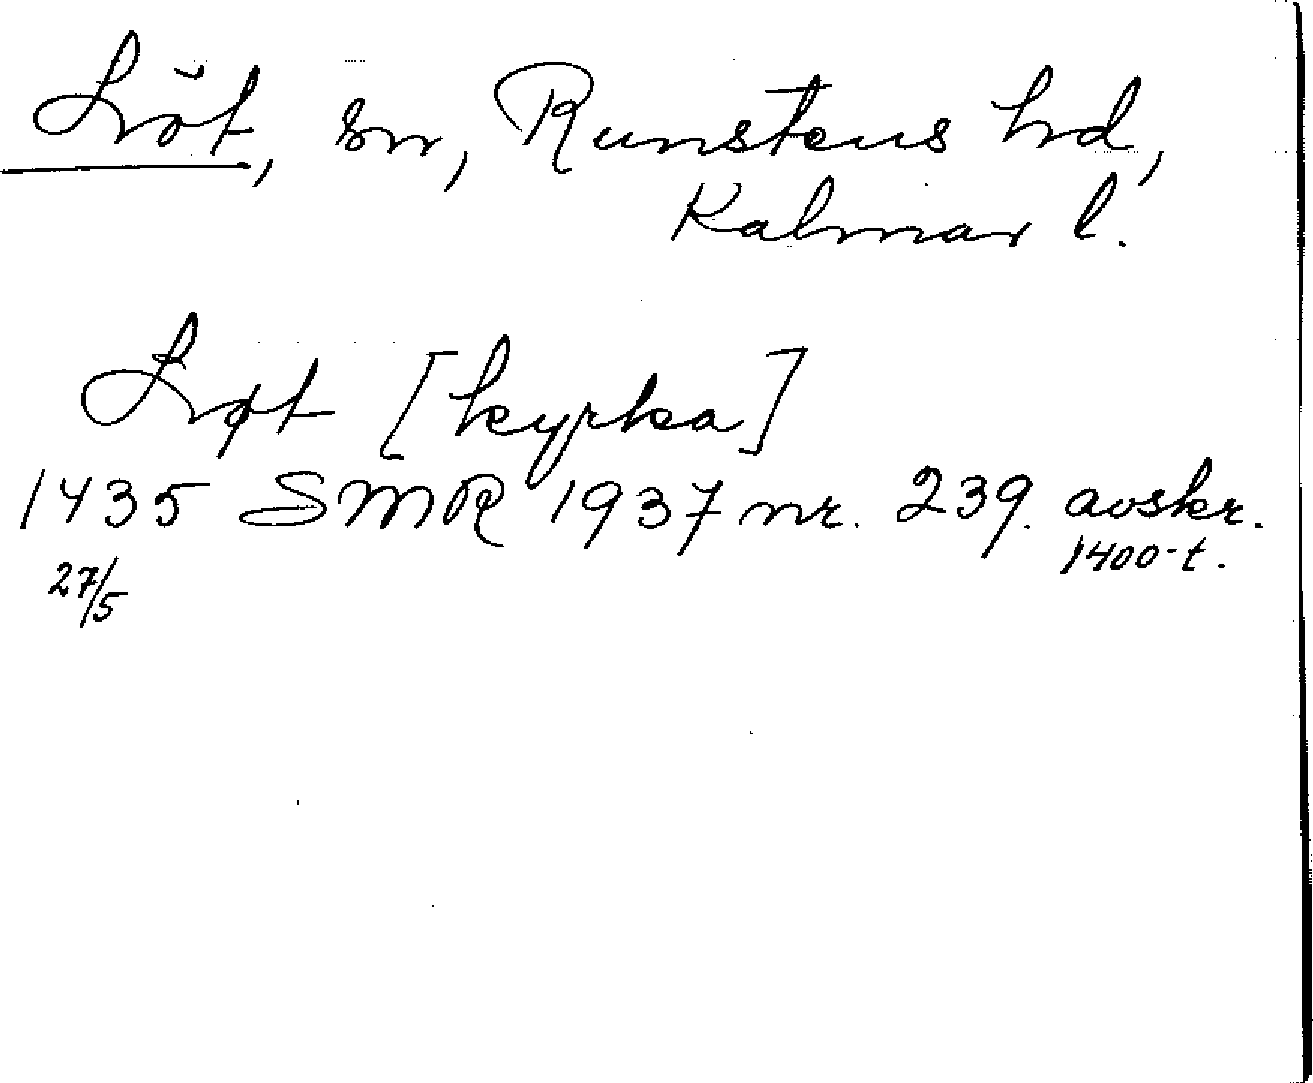 Löt, sn, Runstens hd,
Kalmar l.
Løt [kyrka]
1435 SMR 1937 nr. 239. avskr.
1400-t.
27/5